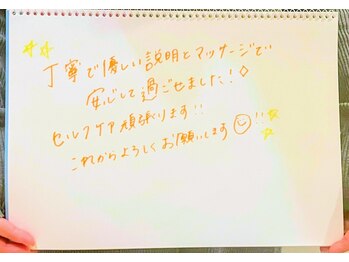 丁寧で優しい説明とマッサージで
安心して過ごせました！◇
セルフケア頑張ります!!
これからよろしくお願いします☺!!